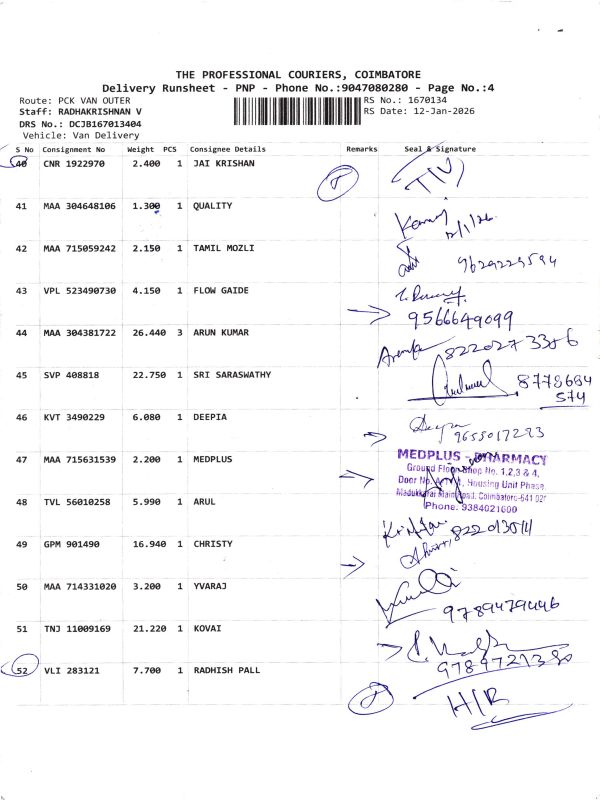 THE PROFESSIONAL COURIERS, COIMBATORE
Delivery Runsheet - PNP - Phone No.:9047080280 - Page No.:4
Route: PCK VAN OUTER
Staff: RADHAKRISHNAN V
DRS No.: DCJB167013404
Vehicle: Van Delivery
RS No.: 1670134
RS Date: 12-Jan-2026
S No Consignment No Weight PCS Consignee Details Remarks Seal & Signature
40 CNR 1922970 2.400 1 JAI KRISHAN
41 MAA 304648106 1.300 1 QUALITY
12/1/26
42 MAA 715059242 2.150 1 TAMIL MOZLI
9629229594
43 VPL 523490730 4.150 1 FLOW GAIDE
9566649099
44 MAA 304381722 26.440 3 ARUN KUMAR
8220273386
45 SVP 408818 22.750 1 SRI SARASWATHY
8778684
574
46 KVT 3490229 6.080 1 DEEPIA
Deepia
9655017223
47 MAA 715631539 2.200 1 MEDPLUS
MEDPLUS - PHARMACY
Ground Floor, Shop No. 1,2,3 & 4,
Door No. Housing Unit Phase,
Madukkarai Main Road, Coimbatore-641 021
Phone: 9384021600
48 TVL 56010258 5.990 1 ARUL
49 GPM 901490 16.940 1 CHRISTY
50 MAA 714331020 3.200 1 YVARAJ
9789479446
51 TNJ 11009169 21.220 1 KOVAI
9789721380
52 VLI 283121 7.700 1 RADHISH PALL
H/R